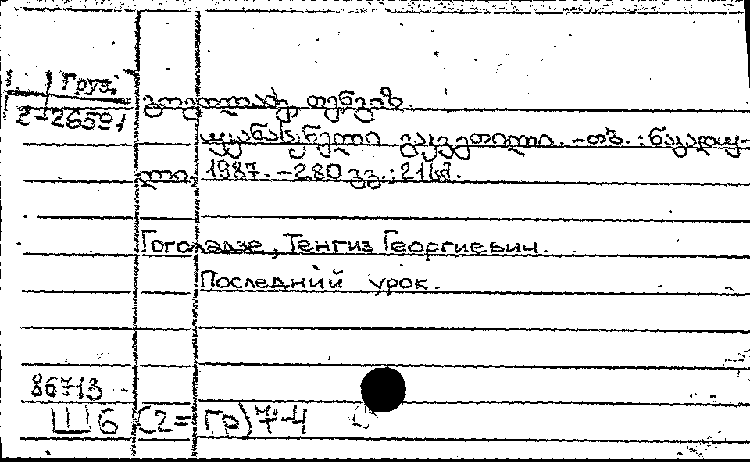 Груз.
2-26591
გოგოლაძე, თენგიზ.
უკანასკნელი გაკვეთილი. - თბ. : ნაკადუ-
ლი, 1987. - 280 გვ. ; 21 სმ.
Гоголадзе, Тенгиз Георгиевич.
Последний урок.
86713
Ш6 (2=Гр)7-4